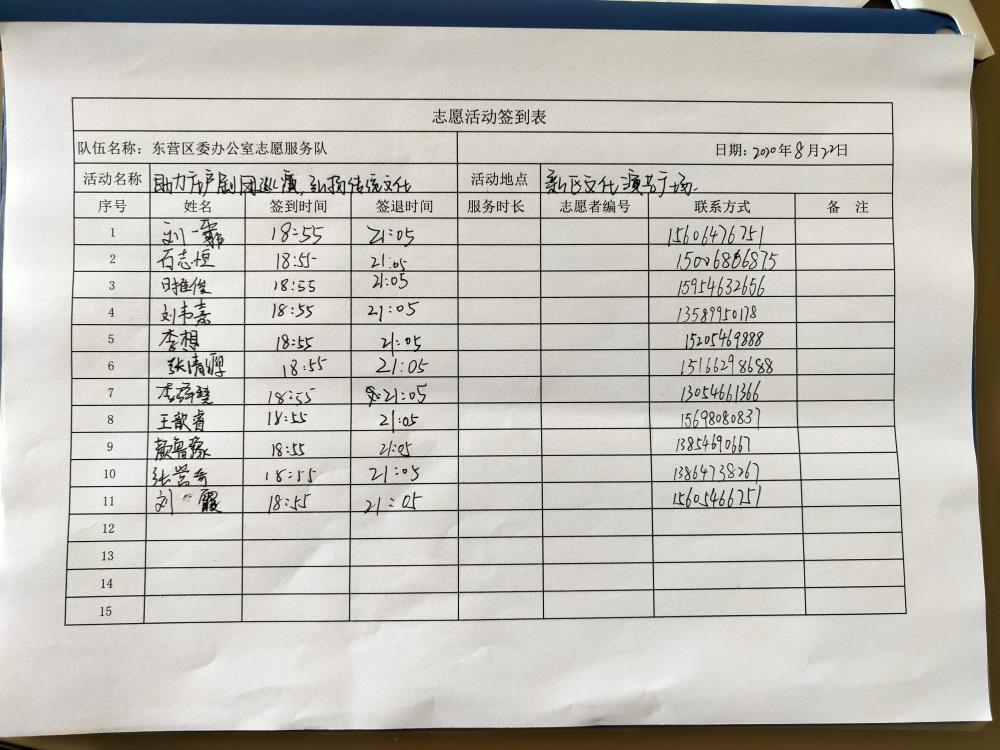 志愿活动签到表
队伍名称：东营区委办公室志愿服务队 日期：2020年8月22日
活动名称 助力庐剧团巡演，弘扬传统文化 活动地点 新区文化演艺广场.
序号 姓名 签到时间 签退时间 服务时长 志愿者编号 联系方式 备 注
1 刘一霖 18:55 21:05 15606476751
2 石志恒 18:55 21:05 15006866875
3 18:55 21:05 15954632656
4 刘韦嘉 18:55 21:05 13589950178
5 李想 18:55 21:05 15205469888
6 张清源 18:55 21:05 15166298688
7 18:55 21:05 13054661366
8 王歆睿 18:55 21:05 15698080837
9 颜鲁豫 18:55 21:05 13854690667
10 张营奇 18:55 21:05 13864738267
11 刘一霞 18:55 21:05 15605466751
12
13
14
15